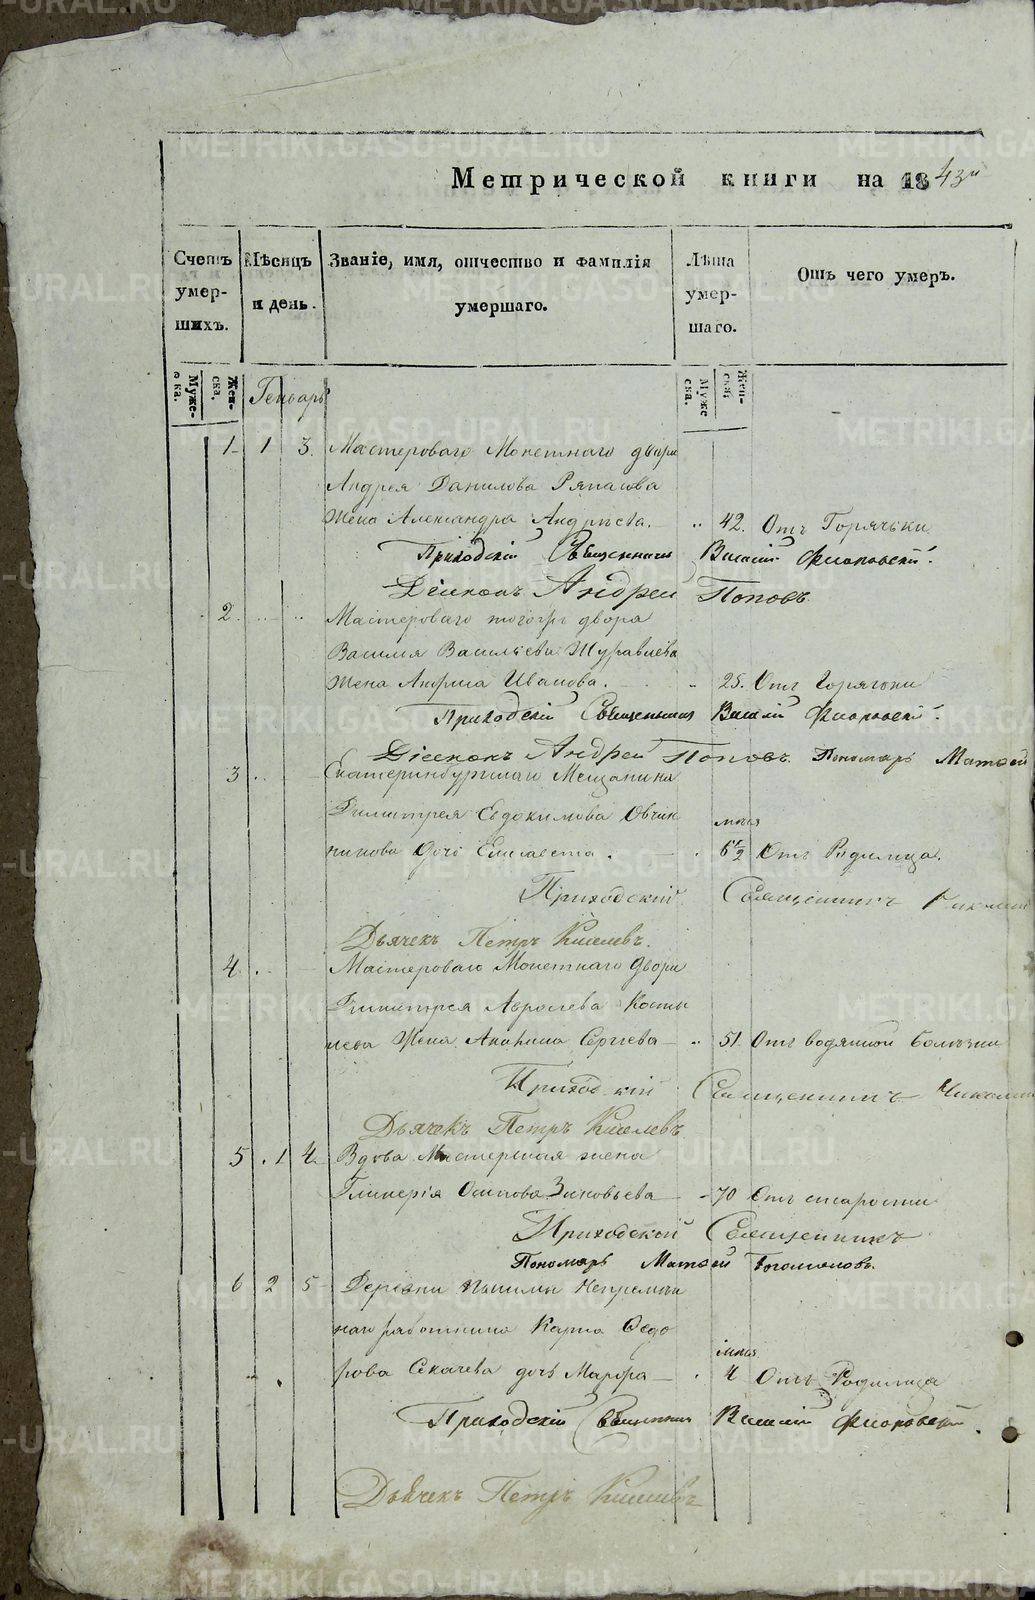 Метрической книги на 1843й
Счетъ умер-шихъ.
Мѣсяцъ и день.
Званіе, имя, отчество и фамилія умершаго.
Лѣта умер-шаго.
Отъ чего умеръ.
Муже-ска. Жен-ска. Генварь Муже-ска. Жен-ска,
1 1 3. Мастероваго Монетнаго двора
Андрея Данилова Ряпасова
Жена Александра Андрѣева. 42. Отъ Горячьки
Приходскій Священникъ Василій Флоровскій.
Діаконъ Андрей Поповъ
2 Мастероваго тогожъ двора
Василья Васильева Журавлева
Жена Анфиса Иванова. 25. Отъ Горячки
Приходскій Священникъ Василій Флоровскій.
Діаконъ Андрей Поповъ. Пономарь Матвей
3 Екатеринбургскаго Мещанина
Димитрея Евдокимова Овчин
мѣся
никова дочь Елисавета. 6 1/2 Отъ Родимца.
Приходскій Священникъ Николай
Дьячекъ Петръ Киселевъ.
4. Мастероваго Монетнаго Двора
Димитрея
Жена Сергеева 51 Отъ водянной болѣзни
Приходскій Священникъ Николай
Дьячекъ Петръ Киселевъ
5 1 4 Вдова Мастерская жена
Гликерія Осипова Зиновьева 70 Отъ старости
Приходской Священникъ
Пономарь Матвей Богомоловъ.
6 2 5 Деревни Пышмы Непремѣн
наго работника Карпа Федо
мѣся
рова Секачева дочь Марфа 4 Отъ Родимца
Приходскій Священникъ Василій Флоровскій.
Дьячекъ Петръ Киселевъ
METRIKI.GASO-URAL.RU